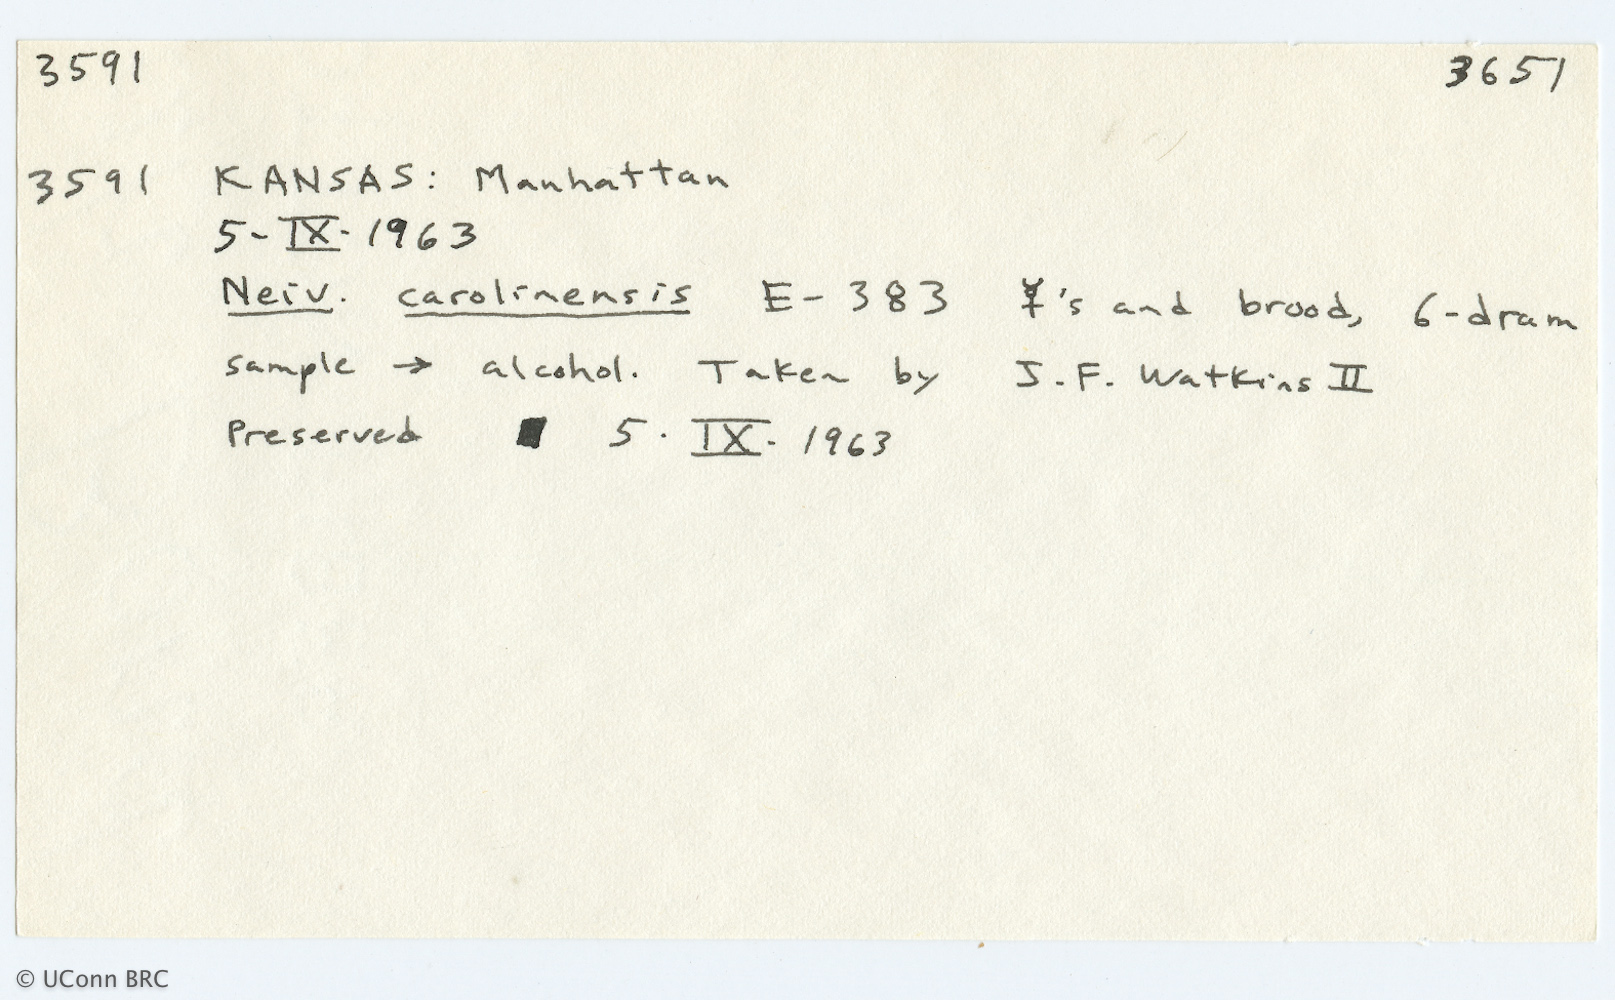 3591 3651
3591 KANSAS: Manhattan
5-IX-1963
Neiv. carolinensis E-383 ☿'s and brood, 6-dram
sample → alcohol. Taken by J.F. Watkins II
Preserved 5. IX. 1963
© UConn BRC